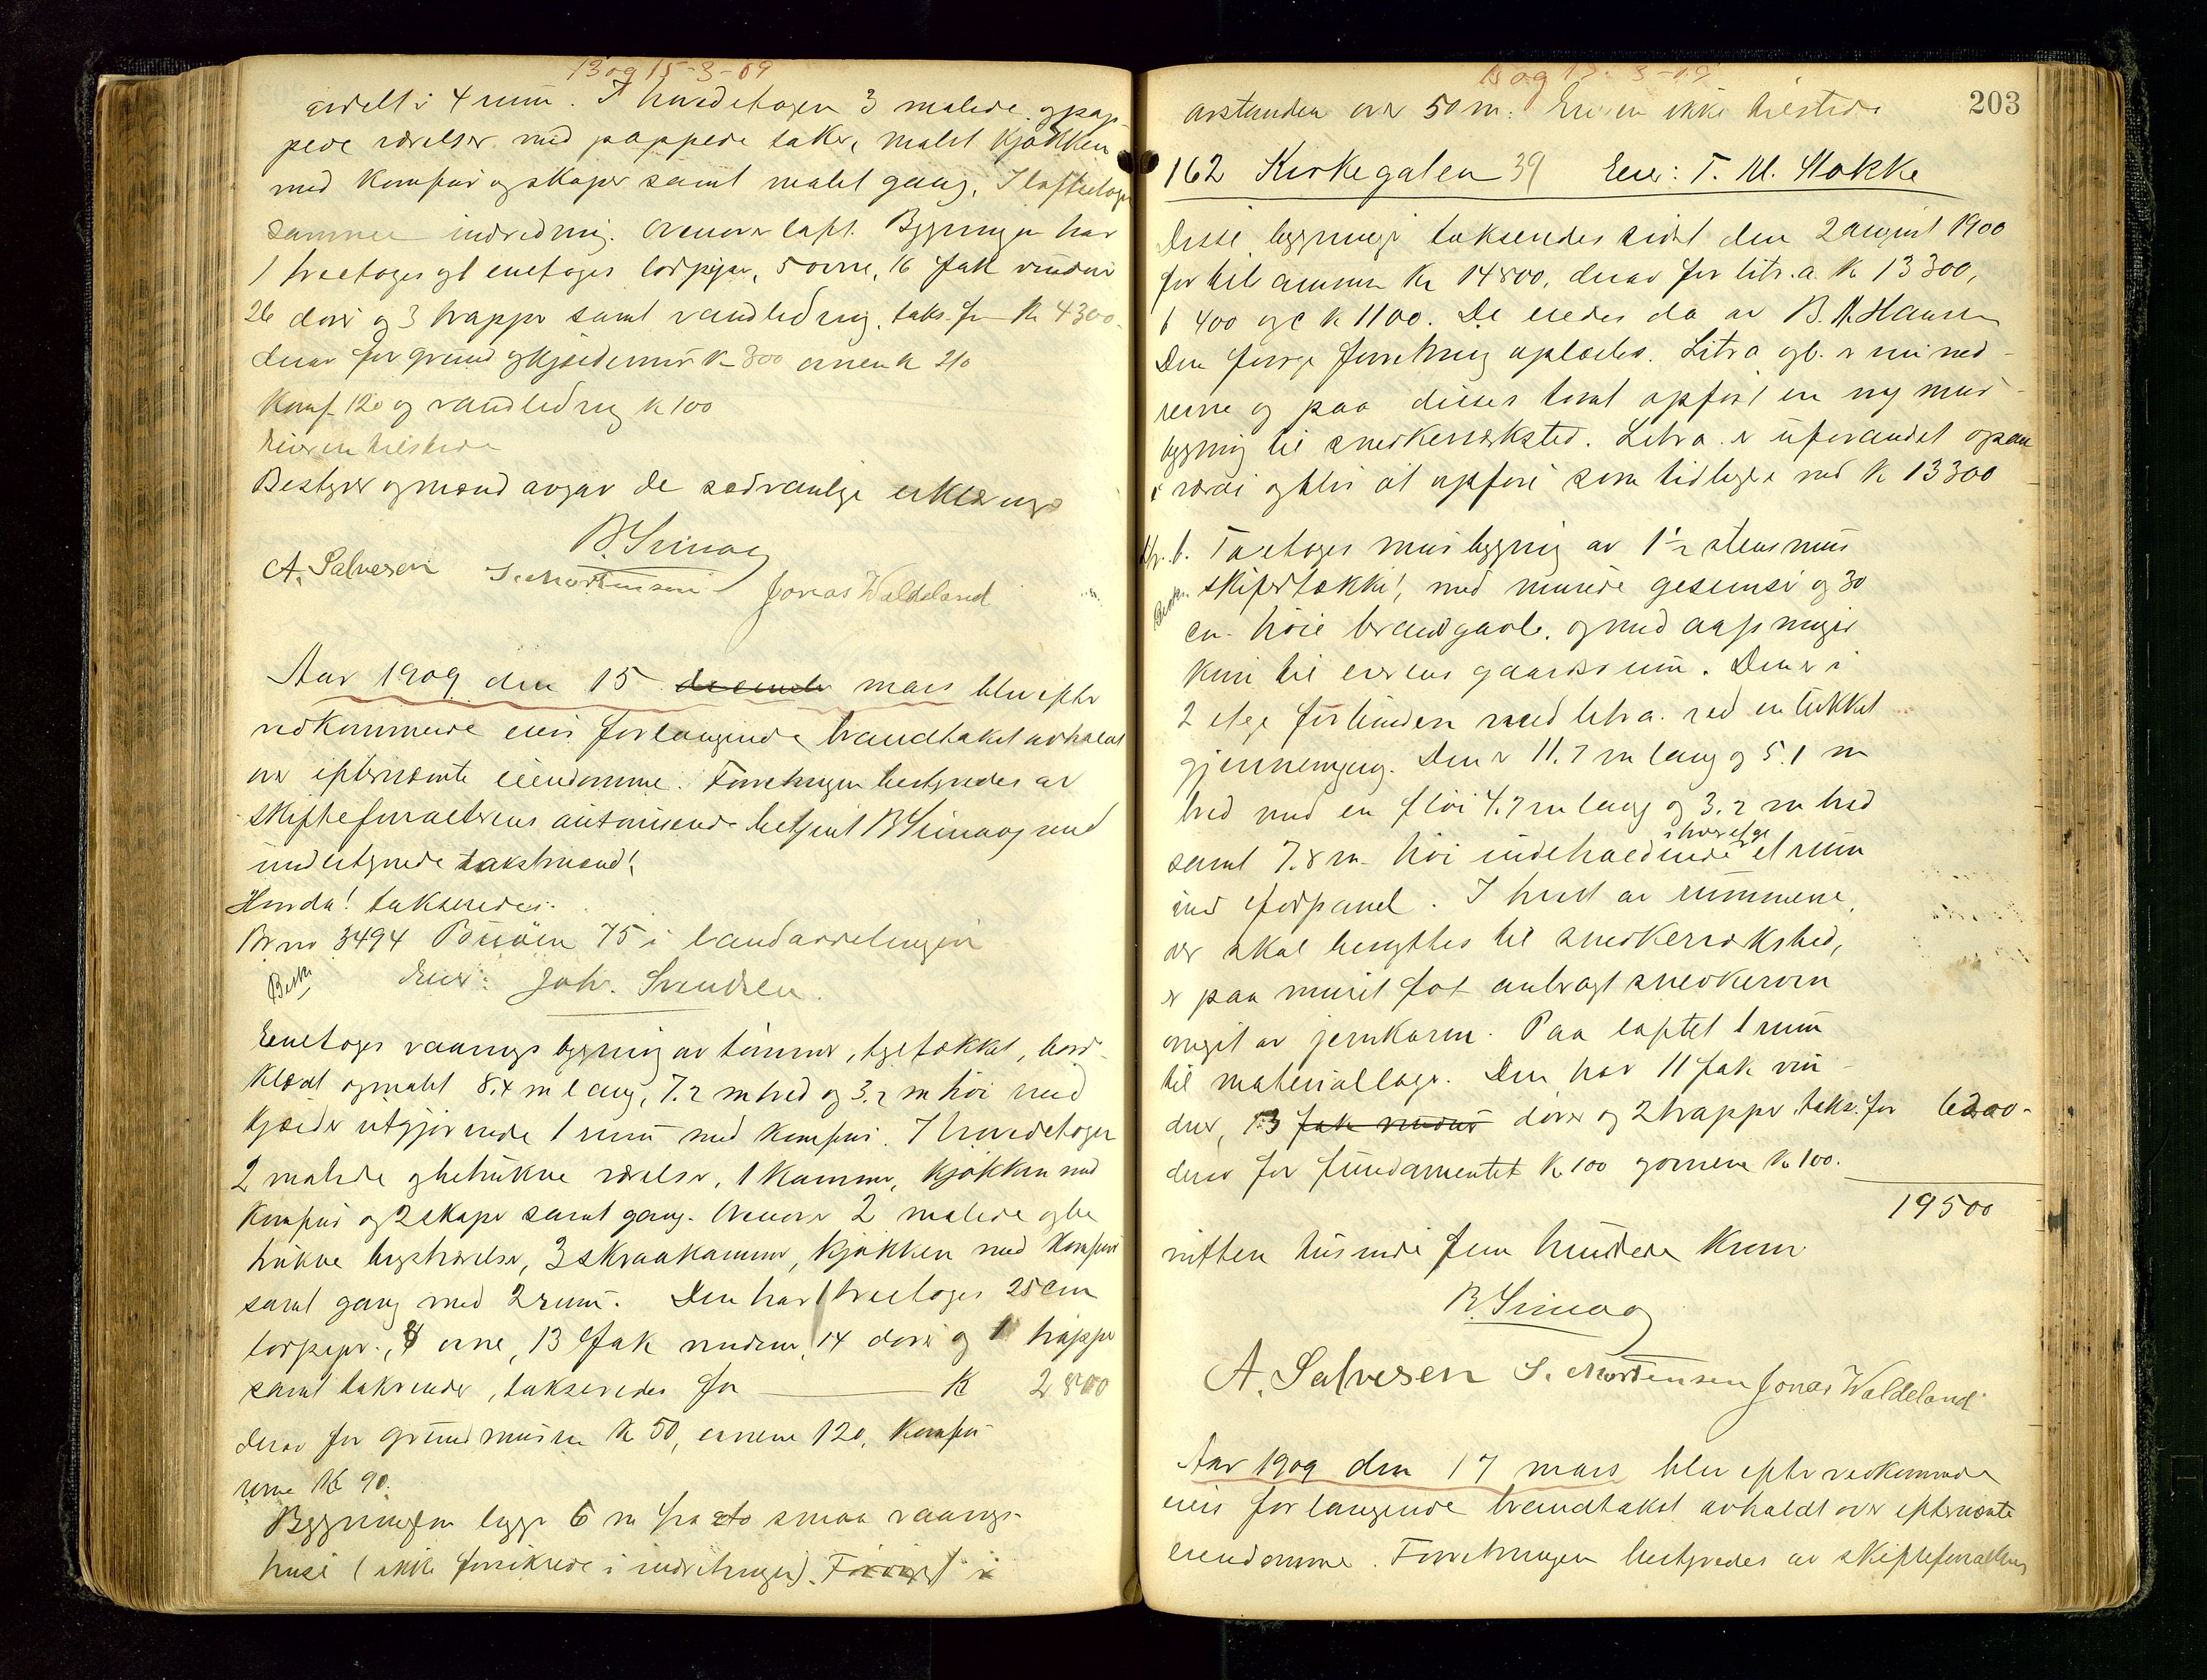 13 og 15-3-09
avdelt i 4 rum. I hovedetagen 3 malede og pap-
pede værelser med pappede taker, malet kjøkken
med komfur og skaper samt malet gang. I loftsetagen
samme indredning. Ovenover loft. Bygningen har
1 træetages gl enetages 5 ovne, 16 fak vinduer
26 dører og 3 trapper samt vandledning. taks. for Kr 4300.-
derav for grund og kjeldermur Kr 300 ovnene Kr 210
Komf. 120 og vandledning Kr 100
Eieren tilstede
Bestyrer og mænd avgav de sædvanlige erklæringer
B. Srinaag
A. Salvesen S. Mortensen Jonas Waldeland
Aar 1909 den 15 mars blev efter
vedkommende eiers forlangende brandtakst avholdt
over efternævnte eiendomme. Forretningen bestyredes av
skifteforvalterens autoriserede betjent B Srinaag med
undertegnede takstmænd!
Hvorda! takseredes.
Br no 3494 Buøen 75 i landavdelingen
Eier: Joh. Svendsen.
Enetages vaaningsbygning av tømmer, tegltækket, bord-
klædt og malet 8.4 m lang, 7.2 m bred og 3.2 m høi med
kjelder utgjørende 1 rum med komfur. I hovedetagen
2 malede og betrukne værelser, 1 kammer, kjøkken med
komfur og 2 skaper samt gang. Ovenover 2 malede og be
trukne kvistværelser, 3 skraakammer, kjøkken med komfur
samt gang med 2 rum. Den har 1 træetages 25 cm
4 ovne, 13 fak vinduer, 14 dører og 1 trappe
samt takrender, takseredes for Kr 2800
derav for grundmuren Kr 50, ovnene 120, komfu-
rerne Kr 90.
Bygningen ligger 6 m fra to smaa vaanings-
huse (ikke forsikrede i indretningen).
15 og 17. 3-09
203
avstanden over 50 m. Eieren ikke tilstede
162 Kirkegaten 39 Eier: T. M. Stokke
Disse bygninger takseredes sidst den 2 august 1900
for tilsammen Kr 14800, derav for litr. a. Kr 13300,
b 400 og c Kr 1100. De eiedes da av B. A. Hansen
Den forrige forretning oplæstes. Litr a og b. er nu ned-
revne og paa disses tomt opført en ny mur-
bygning til snedkerværksted. Litr a. er uforandret ogsaa
i værdi og blir at opføre som tidligere med Kr 13300
Litr. b. Toetages murbygning av 1 1/2 stens mur
skifertækket, med murede gesimser og 30
cm. høie brandgavle, og med aapninger
kun til eierens gaardsrum. Den er i
2 etage forbunden med litr a. ved en lukket
gjennemgang. Den er 11.7 m lang og 5.1 m
bred med en fløi 4.7 m lang og 3.2 m bred
samt 7.8 m. høi indeholdende i hver etage et rum
med forpanel. I hvert av rummene,
der skal benyttes til snedkerværksted,
er paa muret fot anbragt snedkerovn
omgit av jernkarm. Paa loftet 1 rum
til materiallager. Den har 11 fak vin-
duer, 13 fak vinduer dører og 2 trapper taks. for 6200-
derav for fundamentet Kr 100 ovnene Kr 100.
19500
nitten tusinde fem hundrede kroner
B. Srinaag
A. Salvesen S. Mortensen Jonas Waldeland
Aar 1909 den 17 mars blev efter vedkommende
eiers forlangende brandtakst avholdt over efternævnte
eiendomme. Forretningen bestyredes av skifteforvalterens